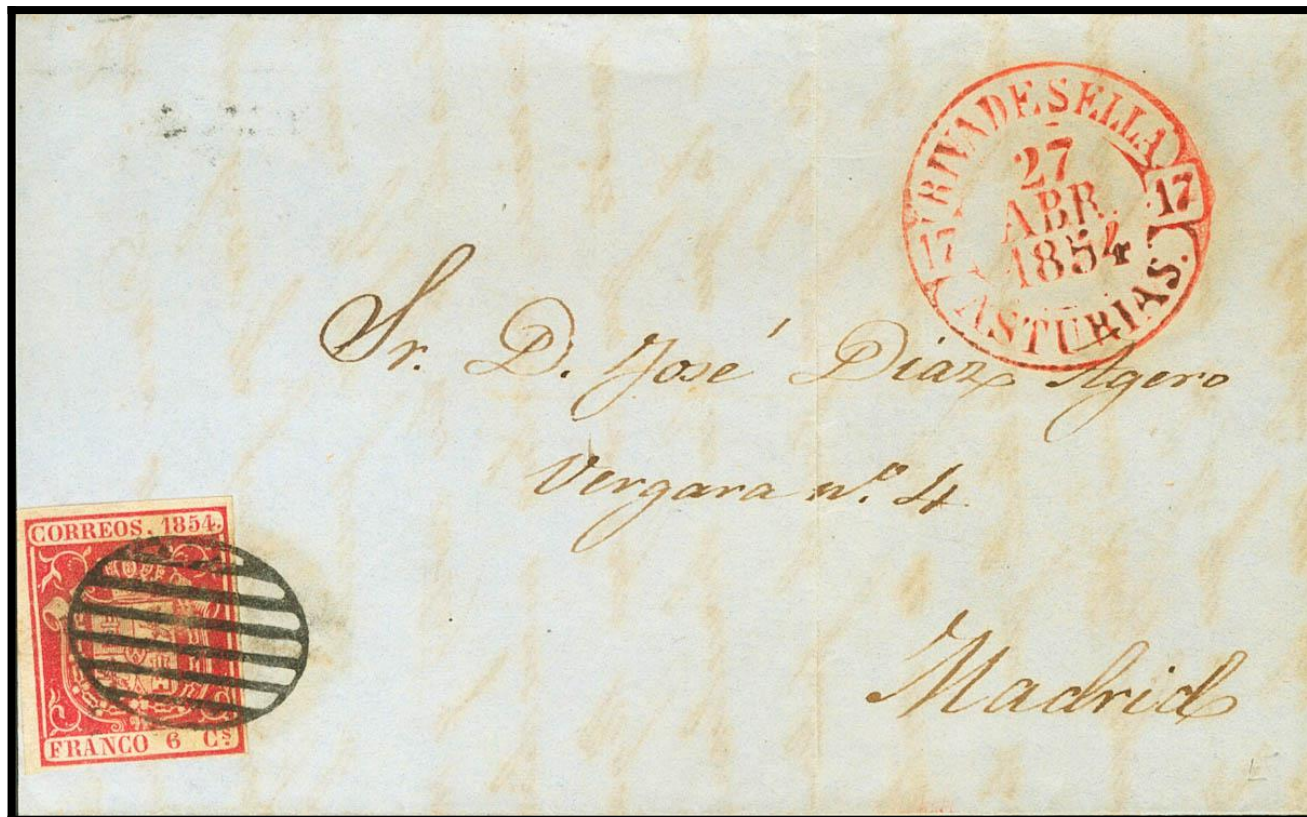 RIVADESELLA
27
ABR.
1854
17
17
ASTURIAS.
Sr. D. José Diaz Agero
Vergara nº. 4
Madrid
CORREOS. 1854.
FRANCO 6 Cs